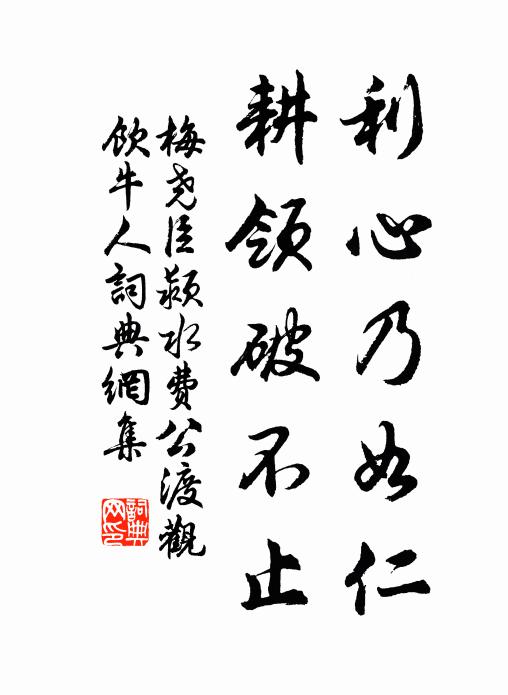 利心乃如仁
耕領破不止
梅堯臣潁水費公渡觀
飲牛人詞典網集
詞典
网印